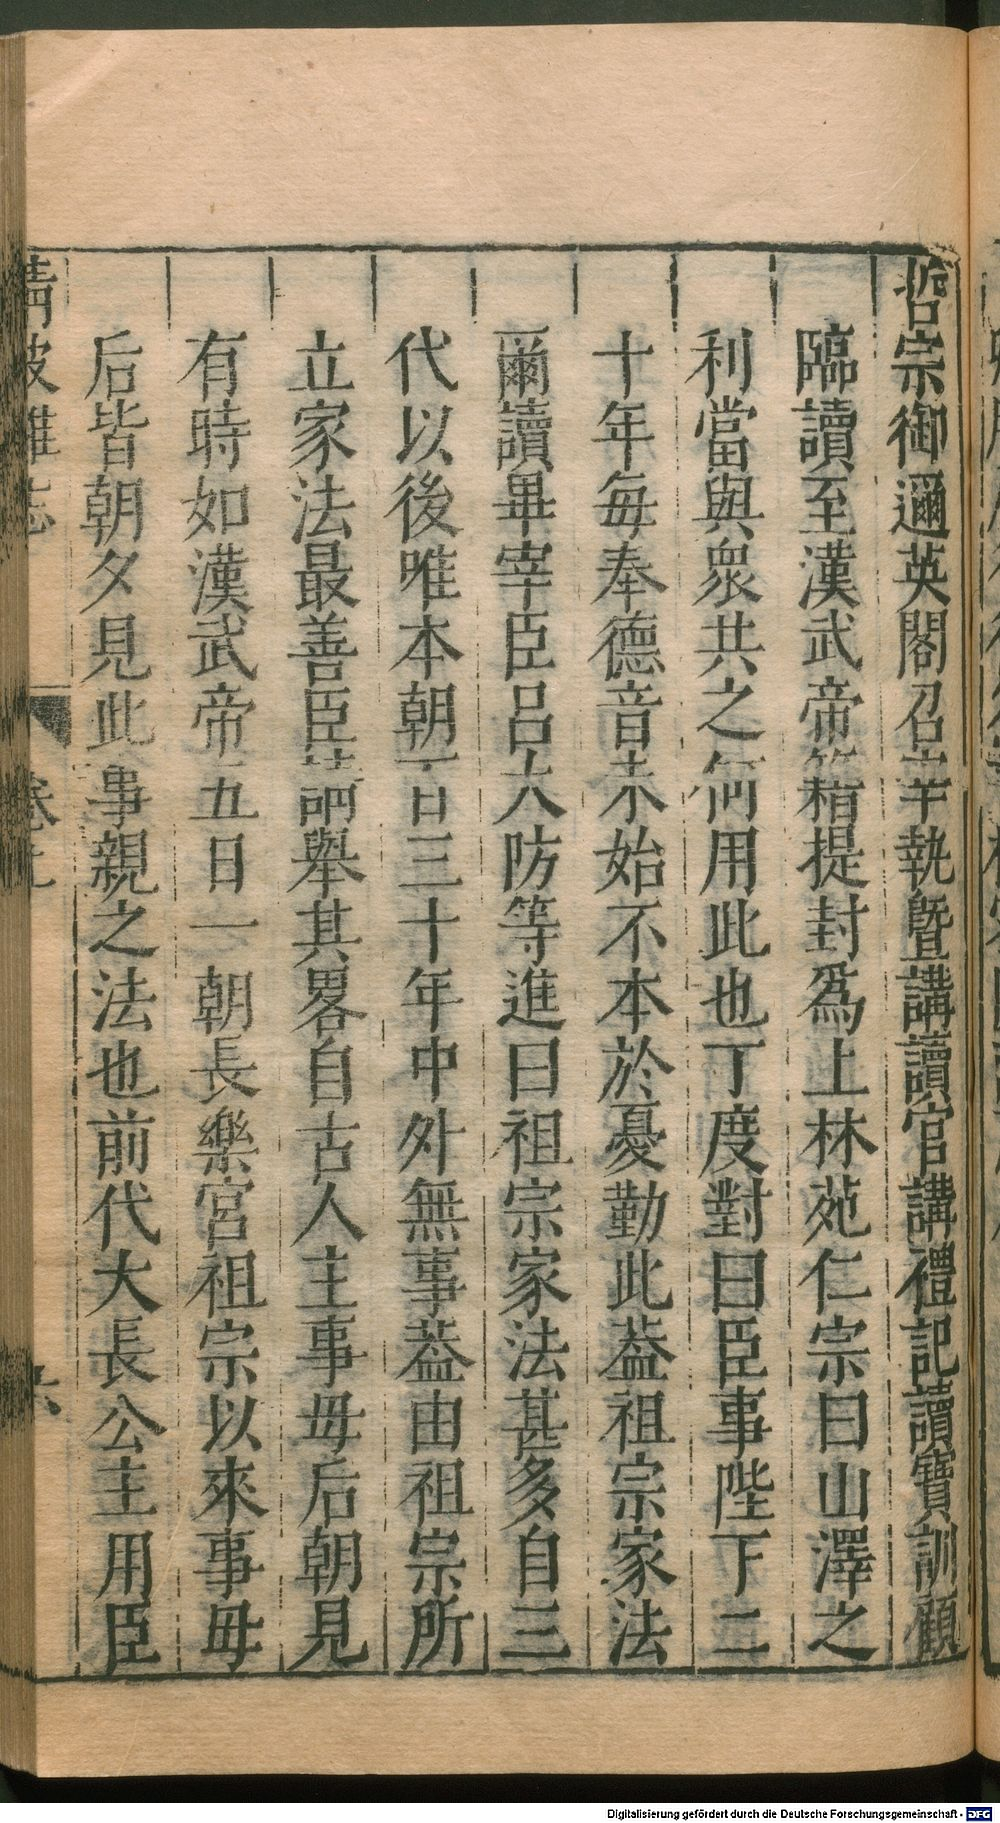 哲宗御邇英閣召宰執曁講讀官講禮記讀寶訓顧
臨讀至漢武帝籍提封爲上林苑仁宗曰山澤之
利當與衆共之何用此也丁度對曰臣事陛下二
十年每奉德音未始不本於憂勤此葢祖宗家法
爾讀畢宰臣呂大防等進曰祖宗家法甚多自三
代以後唯本朝百三十年中外無事葢由祖宗所
立家法最善臣請舉其畧自古人主事母后朝見
有時如漢武帝五日一朝長樂宮祖宗以來事母
后皆朝夕見此事親之法也前代大長公主用臣
清波雜志 卷 六
Digitalisierung gefördert durch die Deutsche Forschungsgemeinschaft - DFG